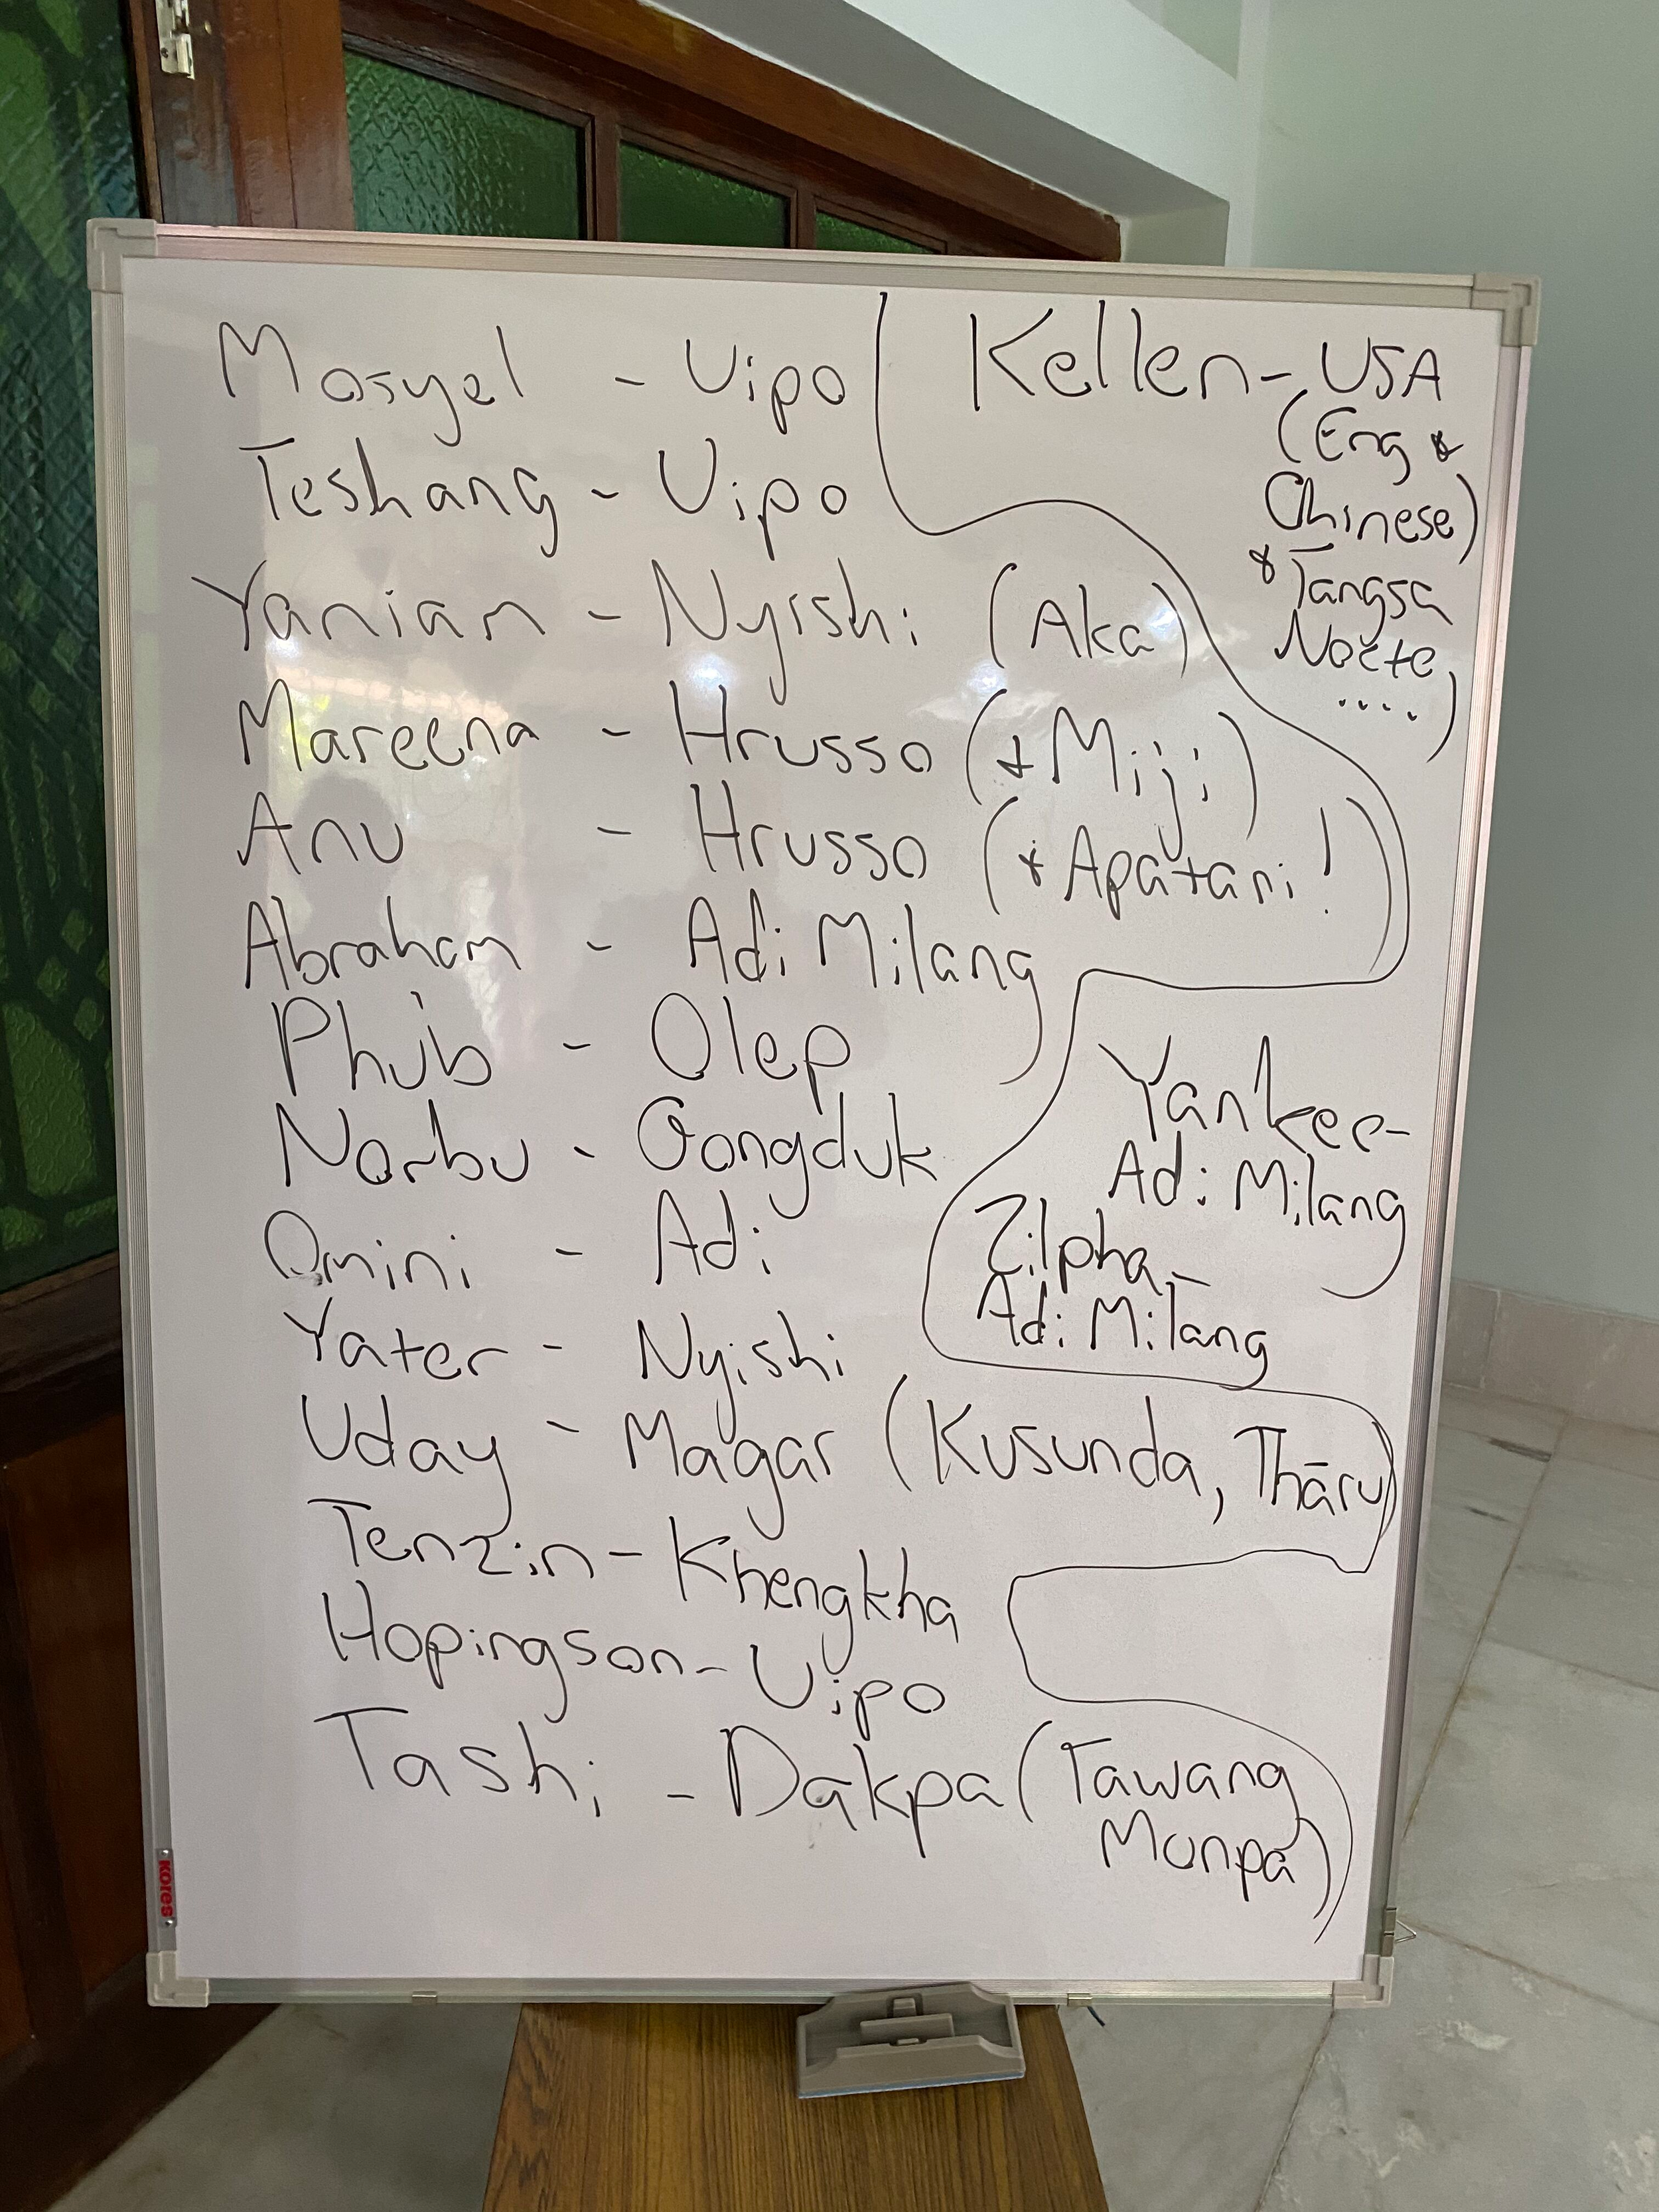 Mosyel - Uipo
Teshang - Uipo
Yanian - Nyishi (Aka)
Mareena - Hrusso (+ Miji)
Anu - Hrusso (+ Apatani!)
Abraham - Adi Milang
Phub - Olep
Norbu - Gongduk
Omini - Adi
Yater - Nyishi
Uday - Magar (Kusunda, Thāru)
Tenzin - Khengkha
Hopingson - Uipo
Tashi - Dakpa (Tawang
Monpa)
Kellen - USA
(Eng &
Chinese)
& Tangsa
Nocte
....)
Yankee-
Adi Milang
Zilpha -
Adi Milang
Kores